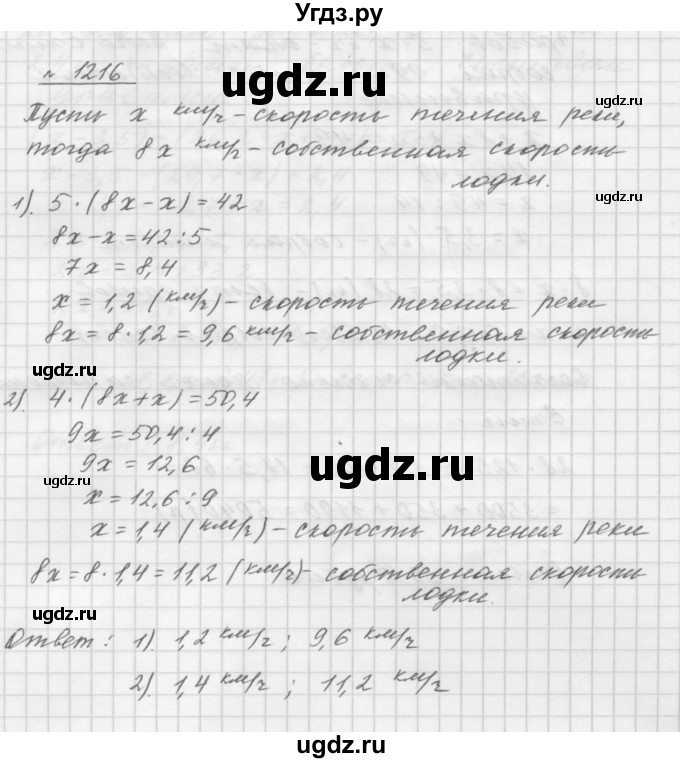 Угдз.ру
№ 1216
ugdz.ru
Пусть x км/ч – скорость течения реки,
тогда 8x км/ч – собственная скорость
лодки.
ugdz.ru
1). 5 · (8x – x) = 42
8x – x = 42 : 5
7x = 8,4
x = 1,2 (км/ч) – скорость течения реки
8x = 8 · 1,2 = 9,6 км/ч – собственная скорость
лодки.
ugdz.ru
ugdz.ru
2). 4 · (8x + x) = 50,4
9x = 50,4 : 4
9x = 12,6
ugdz.ru
ugdz.ru
x = 12,6 : 9
x = 1,4 (км/ч) – скорость течения реки
ugdz.ru
8x = 8 · 1,4 = 11,2 (км/ч) – собственная скорость
лодки.
ugdz.ru
Ответ: 1). 1,2 км/ч ; 9,6 км/ч
2). 1,4 км/ч ; 11,2 км/ч
ugdz.ru